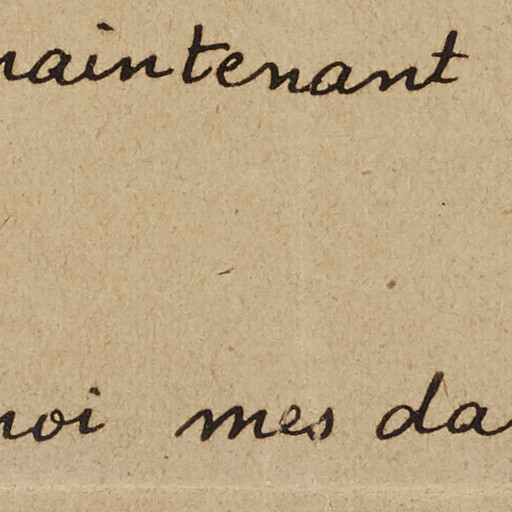 maintenant
moi mes da